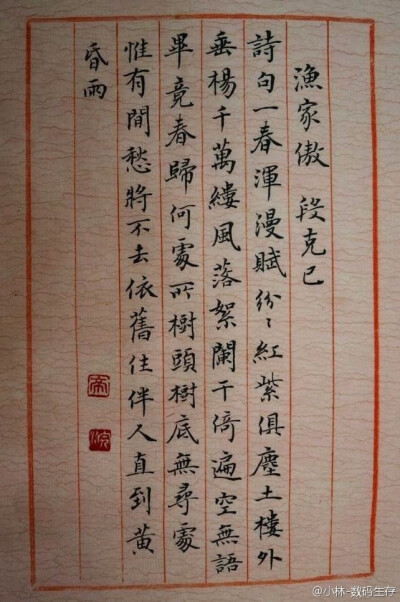 漁家傲 段克己
詩句一春渾漫賦紛〻紅紫俱塵土樓外
垂楊千萬縷風落絮闌干倚遍空無語
畢竟春歸何處所樹頭樹底無尋處
惟有閒愁將不去依舊住伴人直到黄
昏雨
@小林-数码生存